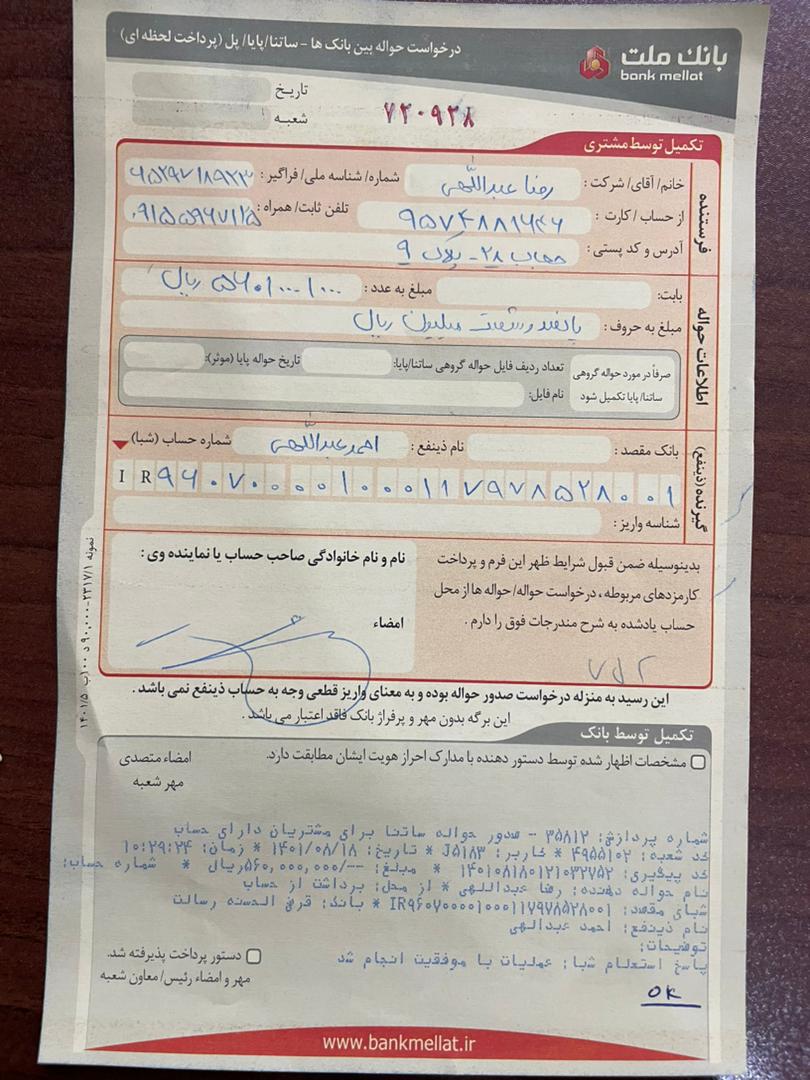 بانک ملت
bank mellat
درخواست حواله بین بانک ها - ساتنا/پایا/ پل (پرداخت لحظه ای)
تاریخ
شعبه
۷۲۰۹۲۸
تکمیل توسط مشتری
فرستنده
خانم/ آقای/ شرکت : رضا عبداللهی شماره/ شناسه ملی/ فراگیر :
از حساب / کارت : ۹۵۷۴۸۸۱۶۴۶ تلفن ثابت/ همراه :
آدرس و کد پستی : ۲۸- پلاک ۹
اطلاعات حواله
بابت: مبلغ به عدد : ۵۶۰/۰۰۰/۰۰۰ ریال
مبلغ به حروف : پانصد و شصت میلیون ریال
صرفاً در مورد حواله گروهی ساتنا/ پایا تکمیل شود
تعداد ردیف فایل حواله گروهی ساتنا/پایا: تاریخ حواله پایا (موثر):
نام فایل:
گیرنده (ذینفع)
بانک مقصد : نام ذینفع : احمد عبداللهی شماره حساب (شبا)
IR۹۶۰۷۰۰۰۰۱۰۰۰۱۱۷۹۷۸۵۲۸۰۰۱
شناسه واریز :
بدینوسیله ضمن قبول شرایط ظهر این فرم و پرداخت
کارمزدهای مربوطه ، درخواست حواله/ حواله ها از محل
حساب یادشده به شرح مندرجات فوق را دارم .
نام و نام خانوادگی صاحب حساب یا نماینده وی :
امضاء
این رسید به منزله درخواست صدور حواله بوده و به معنای واریز قطعی وجه به حساب ذینفع نمی باشد .
این برگه بدون مهر و پرفراژ بانک فاقد اعتبار می باشد .
تکمیل توسط بانک
مشخصات اظهار شده توسط دستور دهنده با مدارک احراز هویت ایشان مطابقت دارد.
امضاء متصدی
مهر شعبه
شماره پردازش: ۳۵۸۱۲ - صدور حواله ساتنا برای مشتریان دارای حساب
کد شعبه: ۴۹۵۵۱۰۲ * کاربر: J۵۱۸۳ * تاریخ: ۱۴۰۱/۰۸/۱۸ * زمان: ۱۰:۲۹:۲۴
کد پیگیری: ۱۴۰۱۰۸۱۸۰۱۲۱۰۳۲۷۵۲ * مبلغ: --/۵۶۰,۰۰۰,۰۰۰ریال * شماره حساب:
نام حواله دهنده: رضا عبداللهی * از محل: برداشت از حساب
شبای مقصد: IR۹۶۰۷۰۰۰۰۱۰۰۰۱۱۷۹۷۸۵۲۸۰۰۱ * بانک: قرض الحسنه رسالت
نام ذینفع: احمد عبدالهی
توضیحات:
پاسخ استعلام شبا: عملیات با موفقیت انجام شد
OK
دستور پرداخت پذیرفته شد.
مهر و امضاء رئیس/ معاون شعبه
www.bankmellat.ir